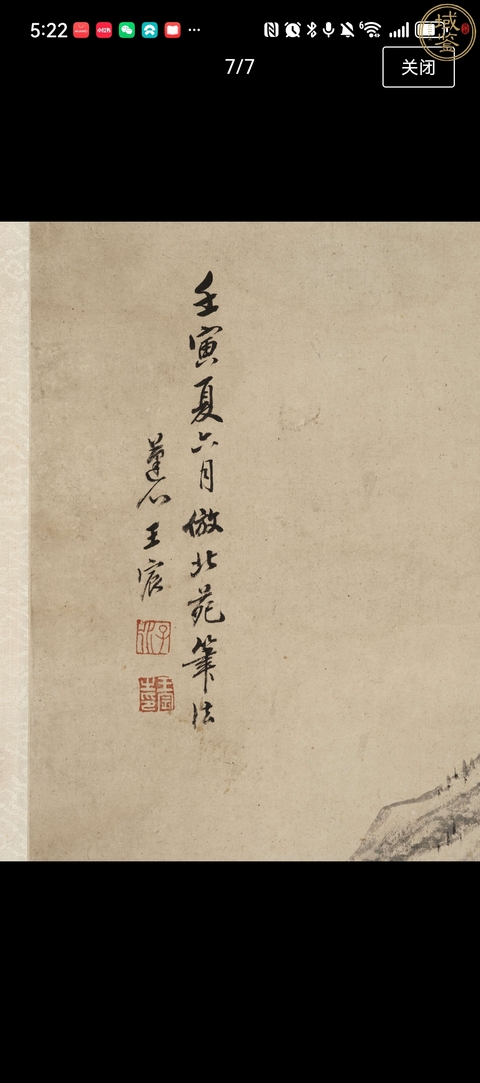 5:22
7/7
关闭
域鉴
壬寅夏六月倣北苑筆法
蓬心王宸